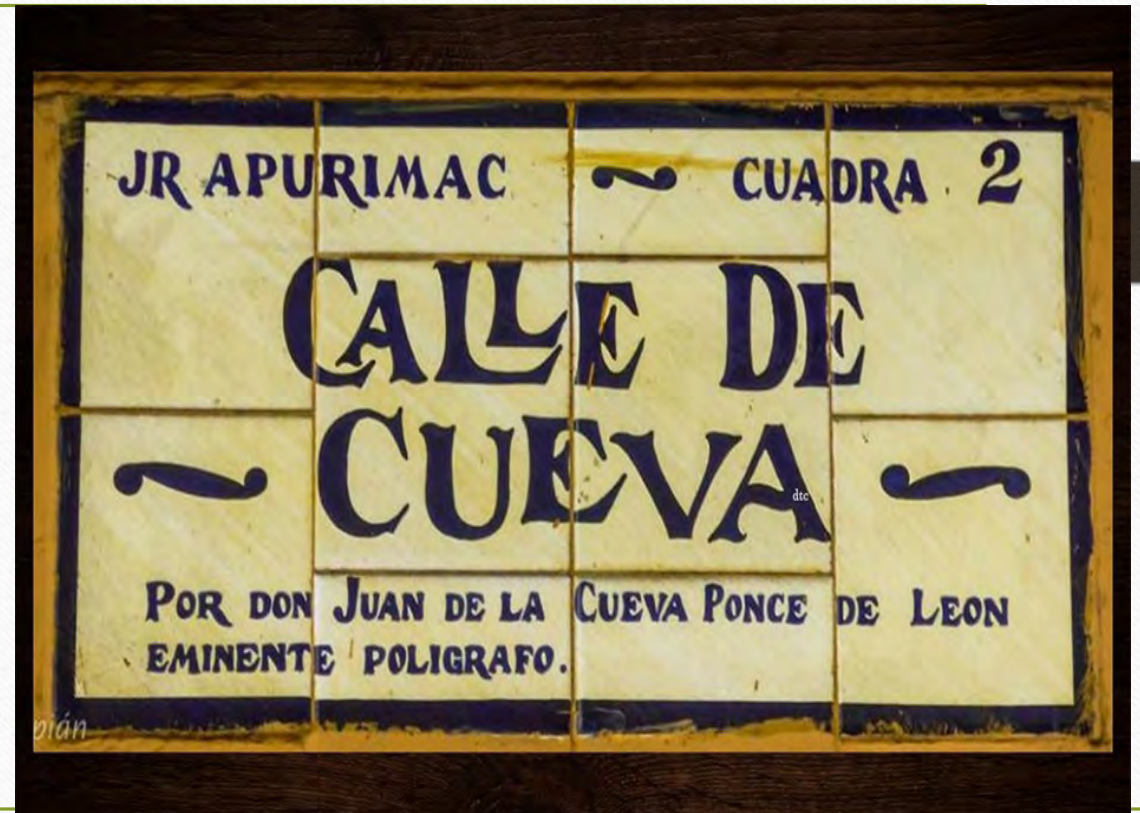 JR APURIMAC ~ CUADRA 2
CALLE DE
CUEVA
dtc
POR DON JUAN DE LA CUEVA PONCE DE LEON
EMINENTE POLIGRAFO.
pián